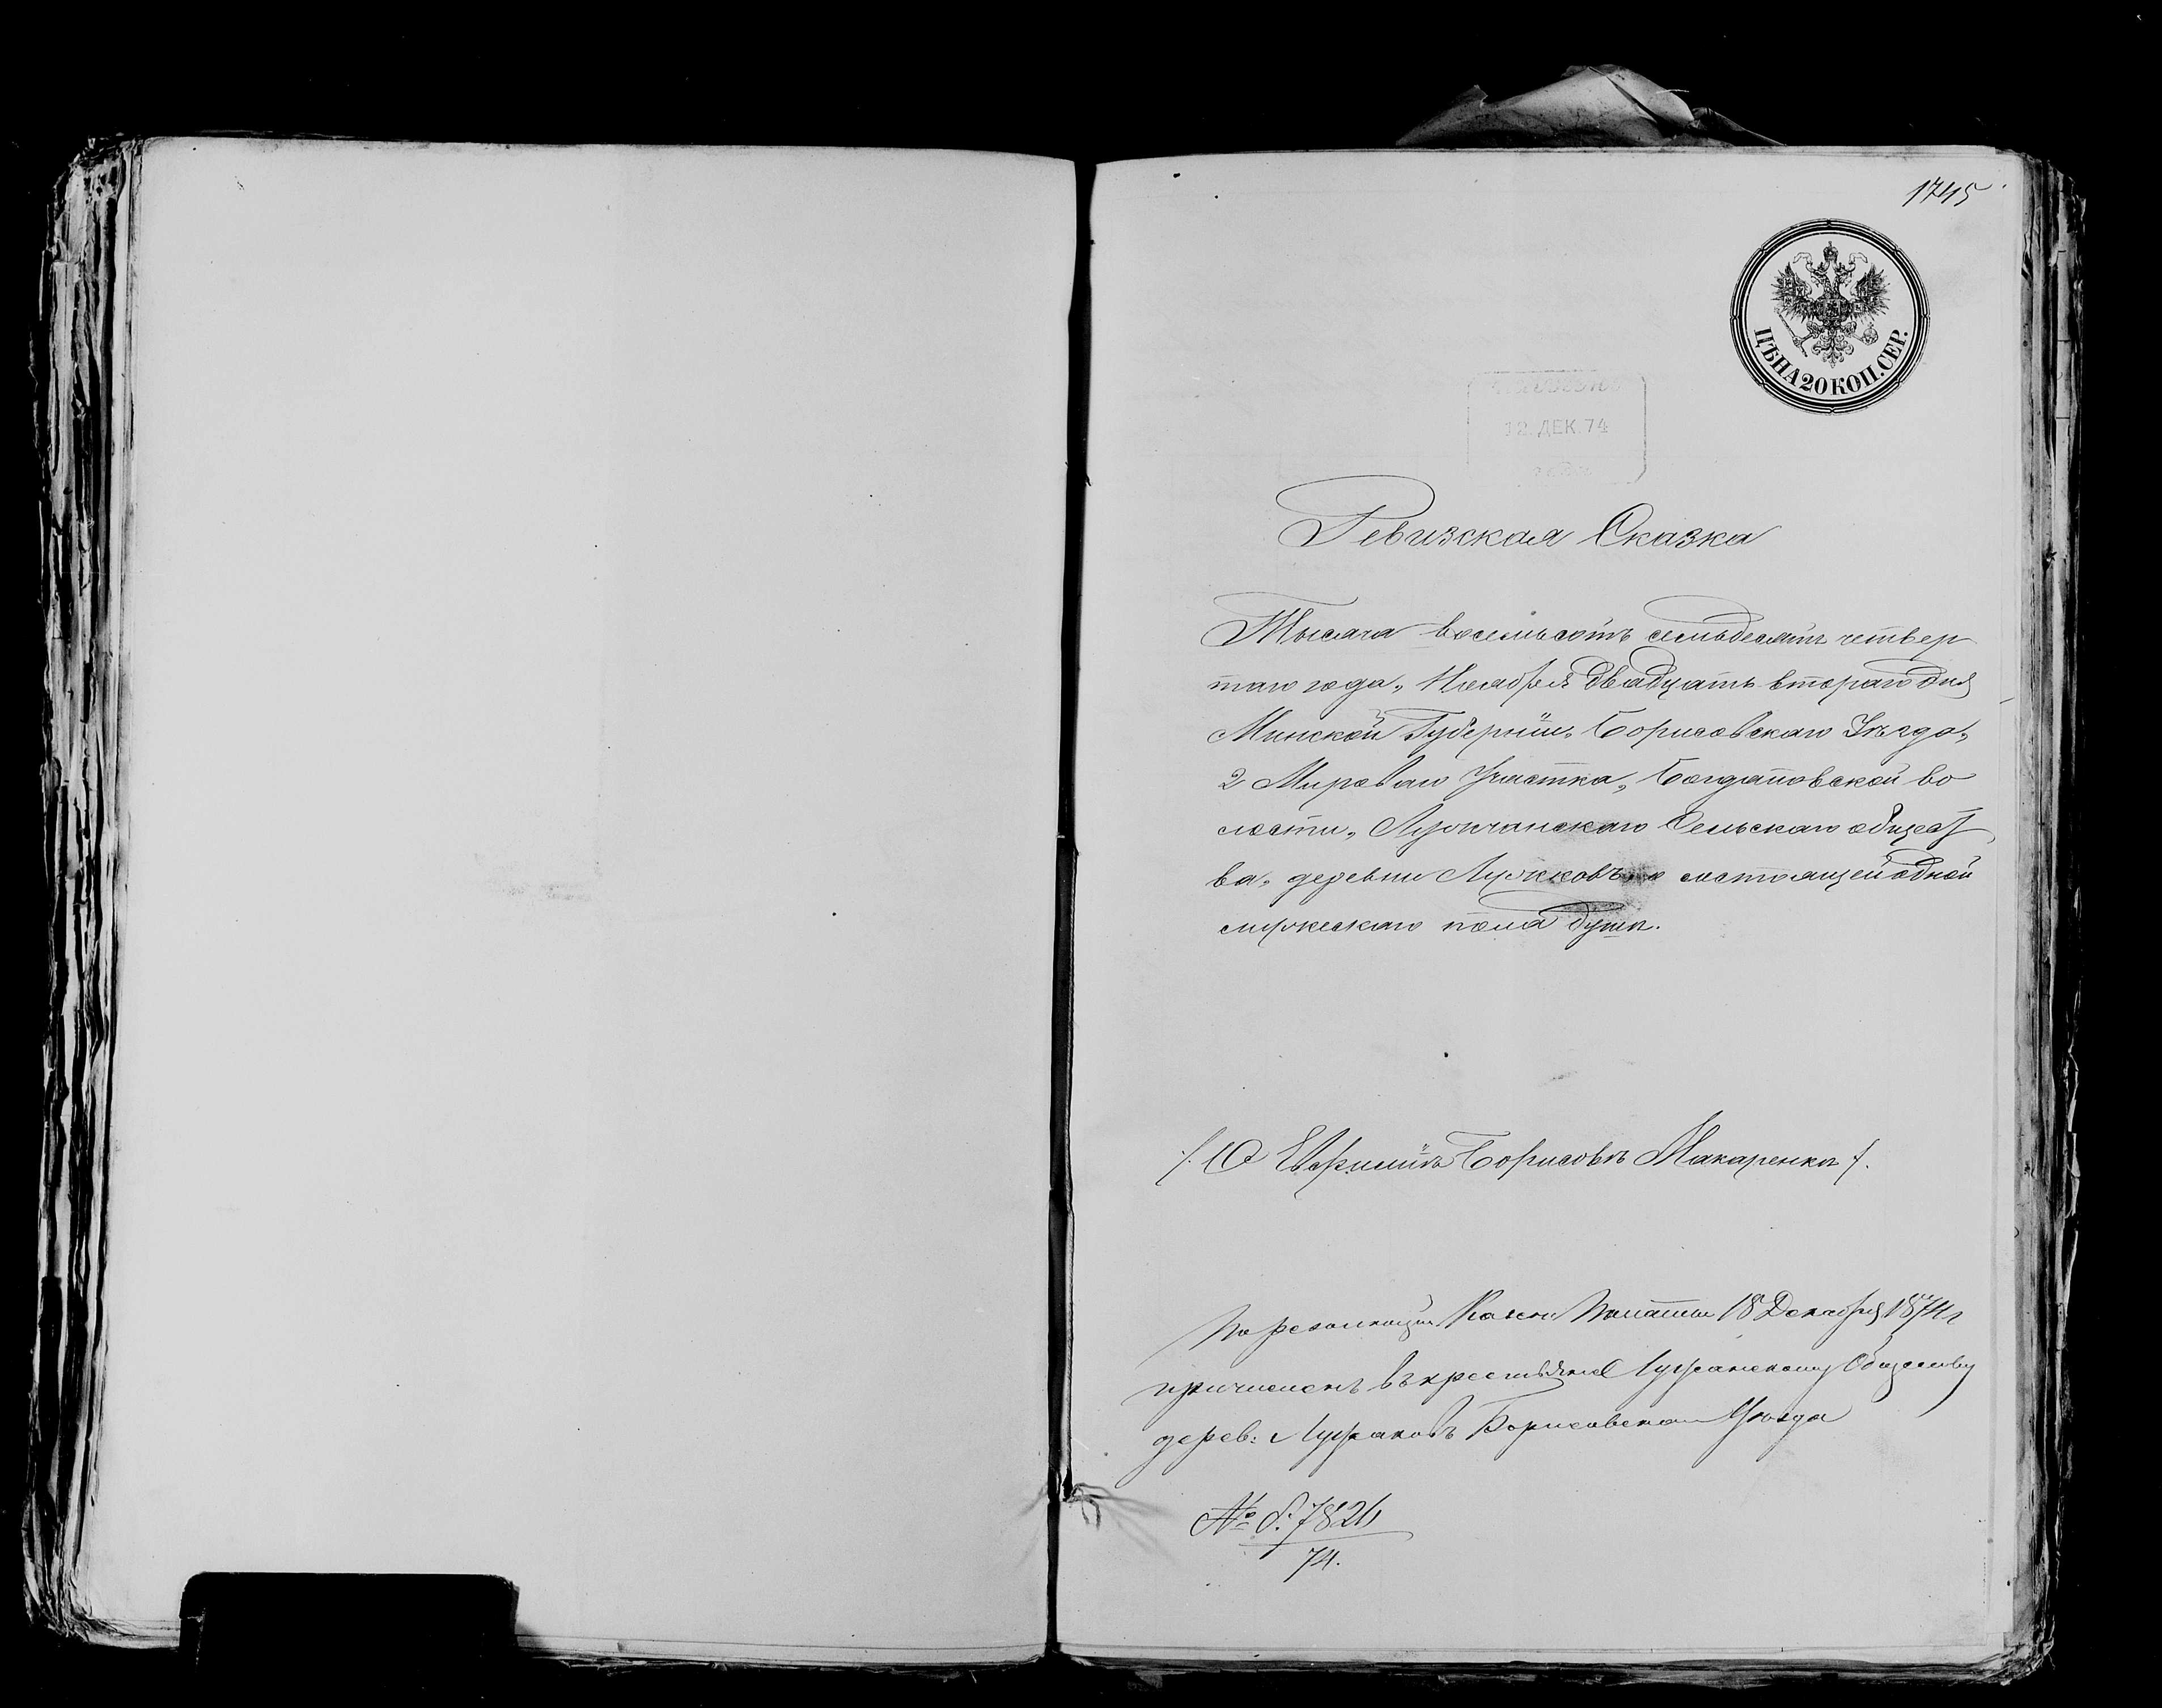 1745
ЦѢНА 20 КОП. СЕР.
12 ДЕК. 74
Ревизская Сказка
Тысяча восемьсотъ семьдесятъ четвер
таго года, Ноября двадцать втораго дня
Минской Губерніи, Борисовскаго Уѣзда,
2 Мироваго Участка, Богдановской во
лости, Лужчанскаго Сельскаго общест
ва, деревни Лужковъ, о состоящей одной
мужескаго пола душѣ.
/. О Евфиміѣ Борисовѣ Макаренкѣ /.
По резолюціи Казен. Палаты 18 Декабря 1874 г
причисленъ въ крестьяне Обществу
дерев: Борисовскаго Уѣзда
№ 7826
74.